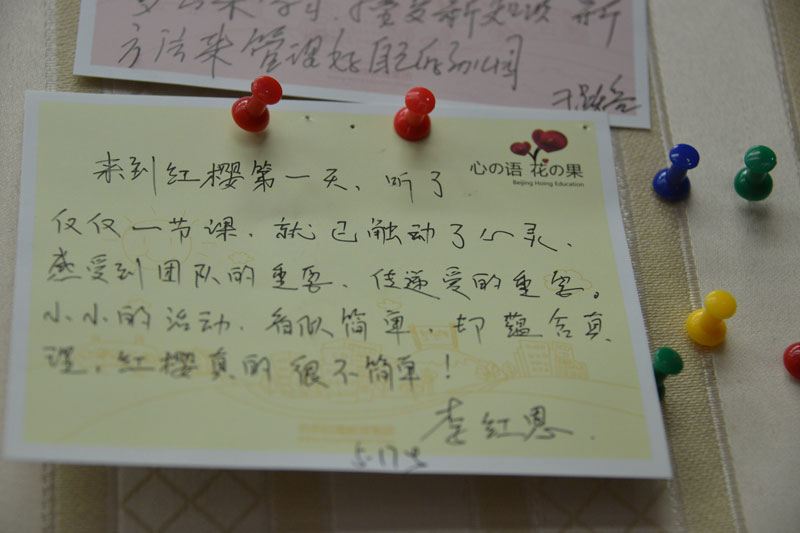 方法来管理好自己的幼儿园
心の语 花の果
Beijing Hoing Education
来到红樱第一天、听了
仅仅一节课、就已触动了心灵、
感受到团队的重要、传递爱的重要。
小小的活动、看似简单、却蕴含真
理、红樱真的很不简单！
李红恩
5.17